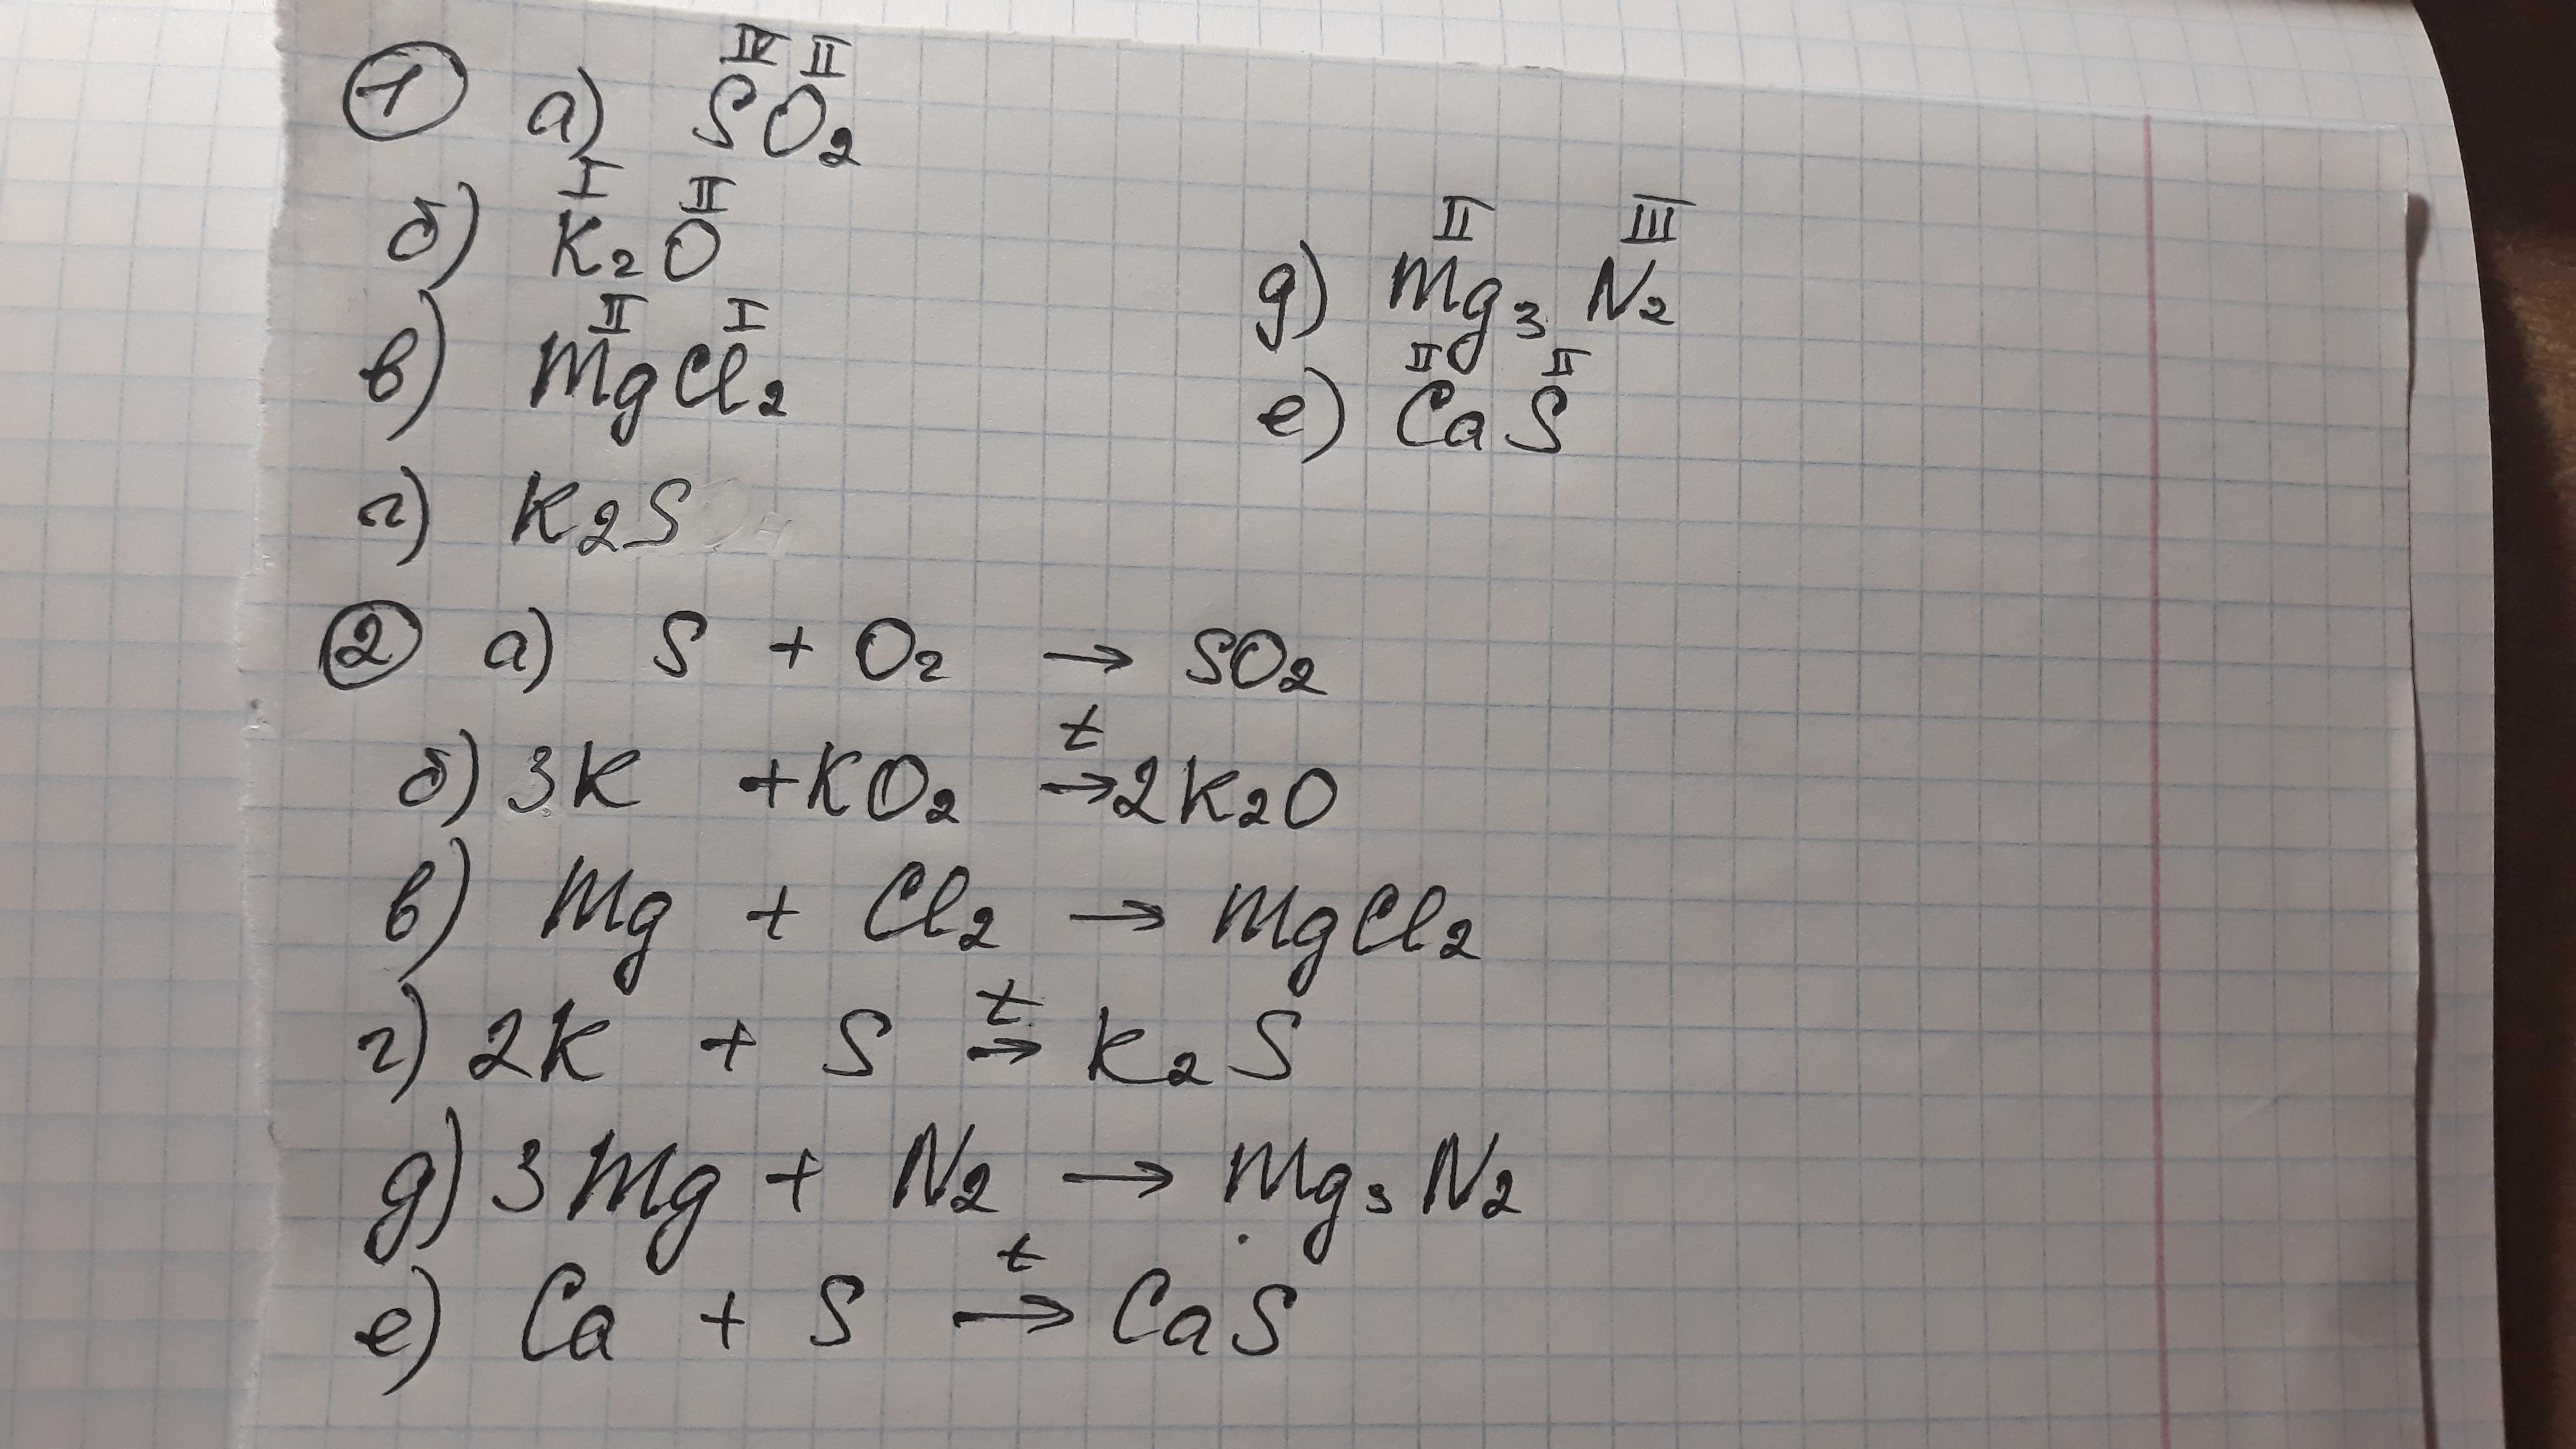 ① а) S^IV O^II ₂
б) K^I ₂ O^II
в) Mg^II Cl^I ₂
г) K₂S
д) Mg^II ₃ N^III ₂
е) Ca^II S^II
② а) S + O₂ → SO₂
б) 3K + KO₂ →^t 2K₂O
в) Mg + Cl₂ → MgCl₂
г) 2K + S →^t K₂S
д) 3Mg + N₂ → Mg₃N₂
е) Ca + S →^t CaS